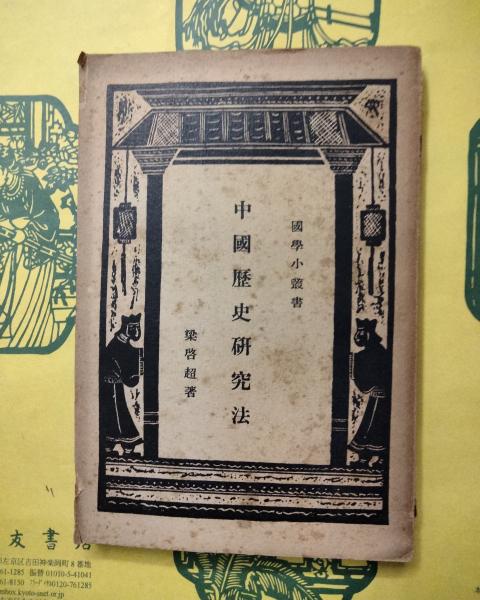 國學小叢書
中國歷史研究法
梁啓超著
友書店
左京区吉田神楽岡町8番地
61-1285 振替 01010-5-41041
61-8150 フリーダイヤル0120-761285
mbox.kyoto-inet.or.jp